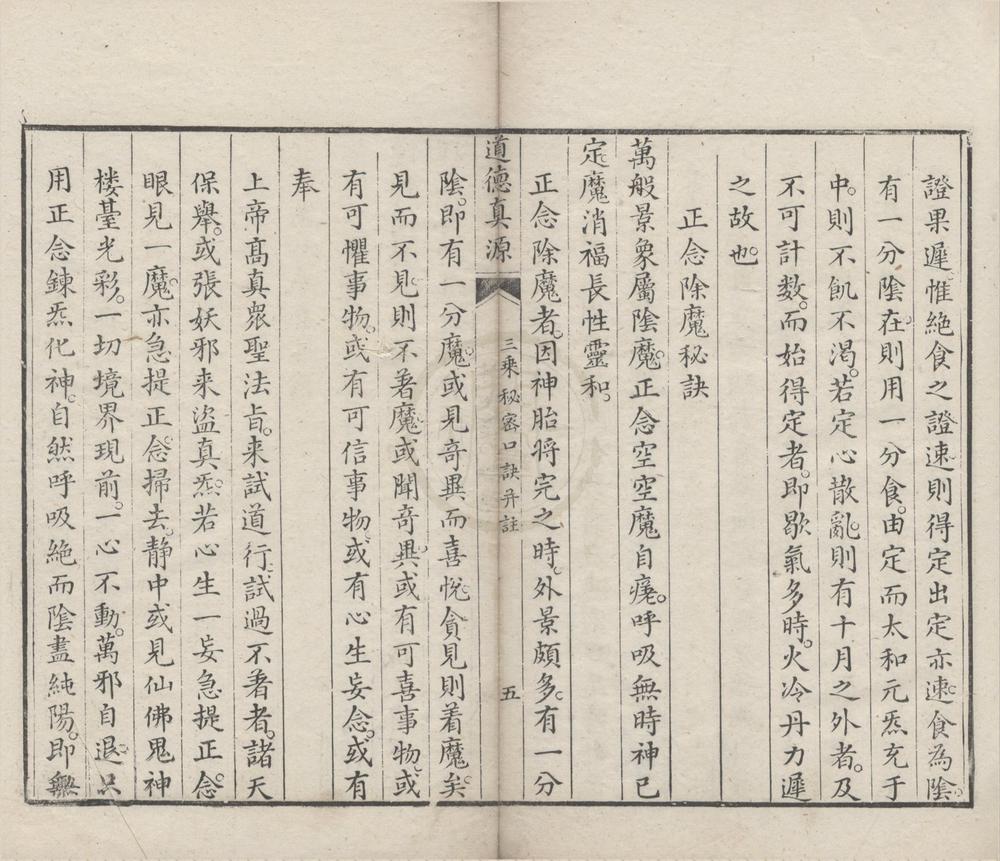 證果遲惟絶食之證速則得定出定亦速食為陰。
有一分陰在則用一分食。由定而太和元炁充于
中。則不飢不渴。若定心散亂。則有十月之外者。及
不可計數。而始得定者。即歇氣多時。火冷丹力遲
之故也。
正念除魔秘訣
萬般景象屬陰魔。正念空空魔自瘥。呼吸無時神已
定。魔消福長性靈和。
正念除魔者。因神胎將完之時。外景頗多。有一分
道德真源
三乘秘密口訣并註
五
陰。即有一分魔。或見奇異而喜悅貪見則着魔矣。
見而不見。則不著魔。或聞奇異。或有可喜事物。或
有可懼事物。或有可信事物。或有心生妄念。或有
奉
上帝高真眾聖法旨。来試道行。試過不著者。諸天
保舉。或張妖邪来盜真炁。若心生一妄急提正念。
眼見一魔。亦急提正念掃去。静中或見仙佛鬼神
楼臺光彩。一切境界現前。一心不動。萬邪自退。只
用正念鍊炁化神。自然呼吸絶而陰盡純陽。即無